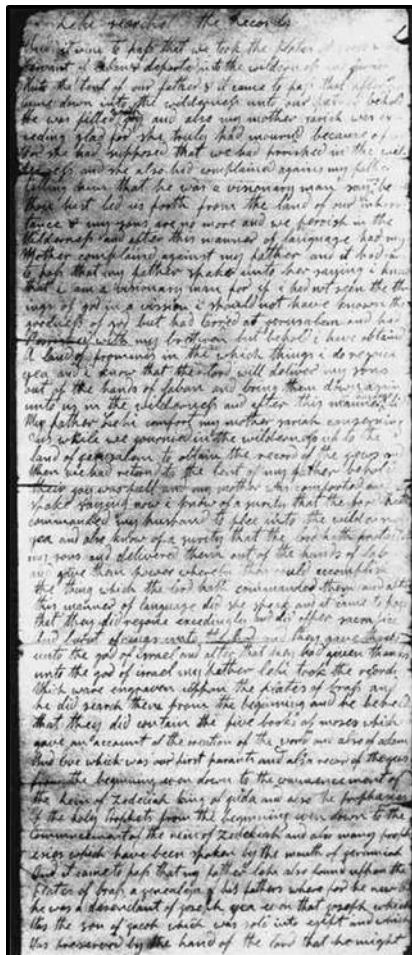 lehi searches the Records
it came to pass that we took the plates
servant of laban & departed into the wilderness
unto the tent of our father & it came to pass that after
came down into the wilderness unto our father behold
he was filled joy and also my mother sariah was ex
ceding glad for she truly had mourned because of
for she had supposed that we had perished in the wil
derness and she also had complained against my father
telling him that he was a visionary man saying be
thou hast led us forth from the land of our inheri
tance & my sons are no more and we perish in the
wilderness and after this manner of language had my
Mother complained against my father and it had
to pass that my father spake unto her saying i know
that i am a visionary man for if i had not seen the th
ings of god in a vission i should not have known the
goodness of god but had taried at jerusalem and had
with my brethren but behold i have obtaind
a land of promiss in the which things i do rejoice
yea and i know that the lord will deliver my sons
out of the hands of laban and bring them down again
unto us in the wilderness and after this manner
My father lehi comfort my mother sariah concerning
us while we journied in the wilderness up to the
land of jerusalem to obtain the record of the jews and
when we had returnd to the tent of my father behold
their joy was full and my mother was comforted and
spake saying now i know of a surity that the lord hath
commanded my husband to flee into the wilderness
yea and also know of a surity that the lord hath protected
my sons and delivered them out of the hands of lab
and gave them power whereby they could accomplish
the thing which the lord hath commanded them and after
this manner of language did she speak and it came to pass
that they did rejoice exceedingly and did offer sacrifice
and burnt offerings unto the lord and they gave thanks
unto the god of israel and after that they had given thanks
unto the god of israel my father lehi took the records
which ware engraven uppon the plates of brass and
he did search them from the beginning and he beheld
that they did contain the five books of moses which
gave an account of the creation of the world and also of adam
and eve which was our first parants and also record of the jews
from the beginning even down to the commencement of
the reign of Zedeciah king of juda and also the prophasies
of the holy prophets from the beginning even down to the
commencement of the reign of Zedekiah and also many proph
esies which have been spoken by the mouth of jerimiah
and it came to pass that my father lehi also found uppon the
plates of brass a genealogy of his fathers where for he knew
he was a desendant of joseph yea even that joseph which
was the son of jacob which was sold into egipt and which
was preserved by the hand of the lord that he might